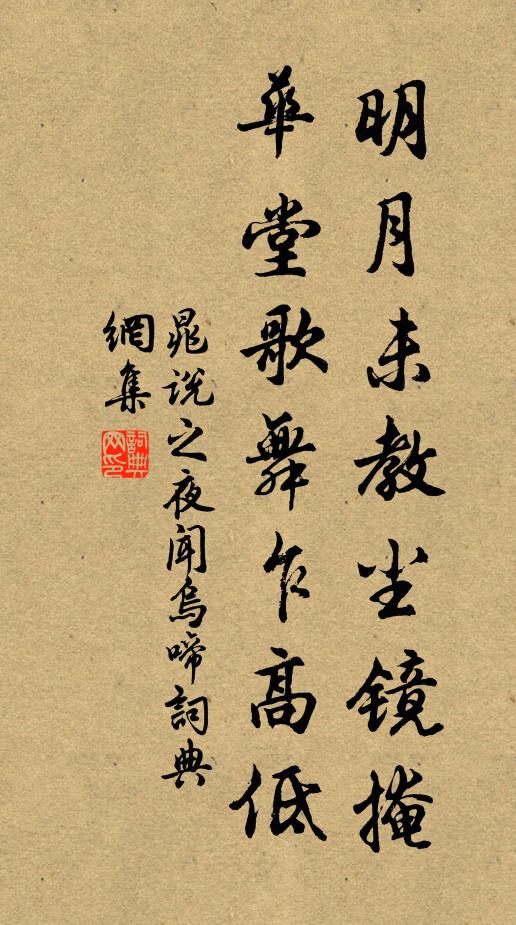 明月未教尘镜掩
華堂歌舞乍高低
晁说之夜闻烏啼詞典
網集
詞典网印